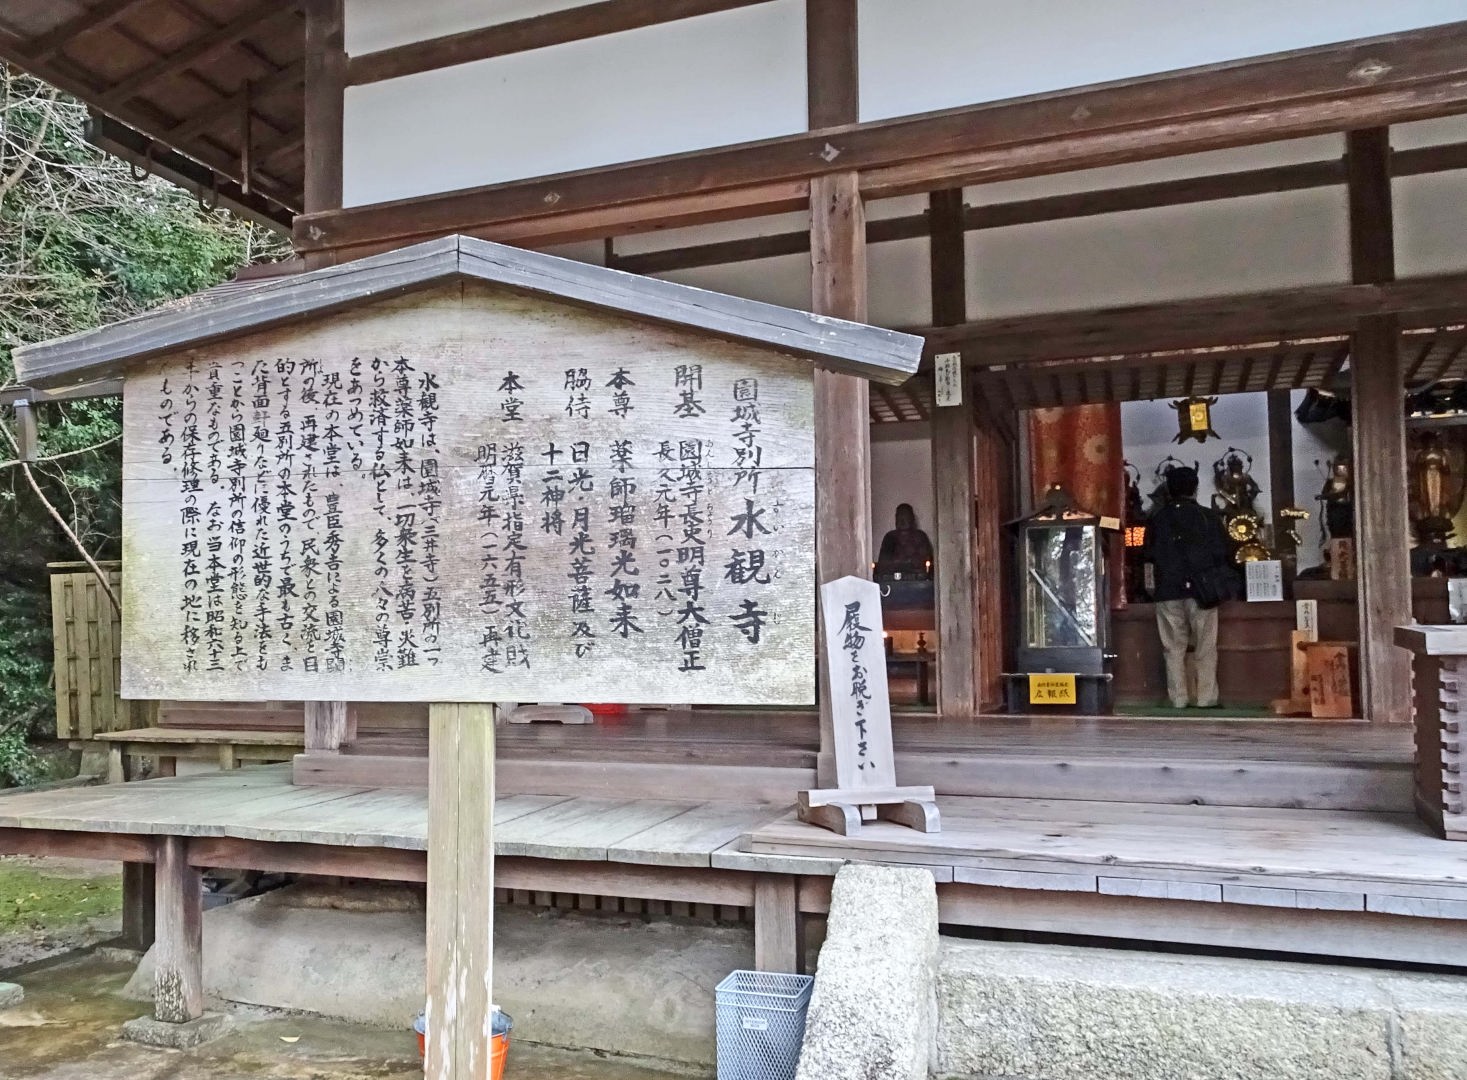 園城寺別所 水観寺
すいかんじ
開基 園城寺長吏明尊大僧正
おんじょうじちょうり
長久元年(一〇二八)
本尊 薬師瑠璃光如来
脇侍 日光・月光菩薩 及び
十二神将
本堂 滋賀県指定有形文化財
明暦元年(一六五五)再建
水観寺は、園城寺(三井寺)五別所の一つ
本尊薬師如来は、一切衆生を病苦・災難
から救済する仏として、多くの人々の尊崇
をあつめている。
現在の本堂は、豊臣秀吉による園城寺闕
所の後、再建されたもので、民衆との交流を目
的とする五別所の本堂のうちで最も古く、ま
た背面軒廻りなどに優れた近世的な手法をも
つことから園城寺別所の信仰の形態を知る上で
貴重なものである。なお当本堂は昭和六十三
年からの保存修理の際に現在の地に移され
たものである。
履物をお脱ぎ下さい
広報紙